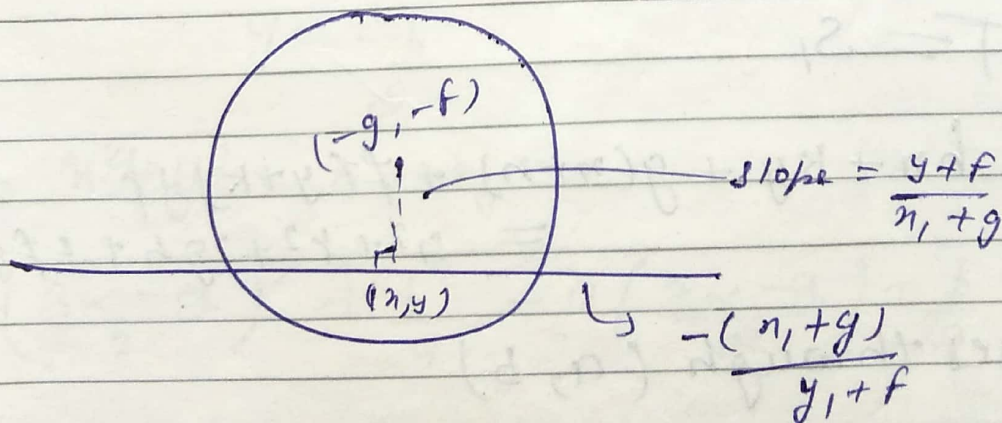 (-g, -f)
slope = y+f / x₁+g
(x, y)
-(x₁+g) / y₁+f